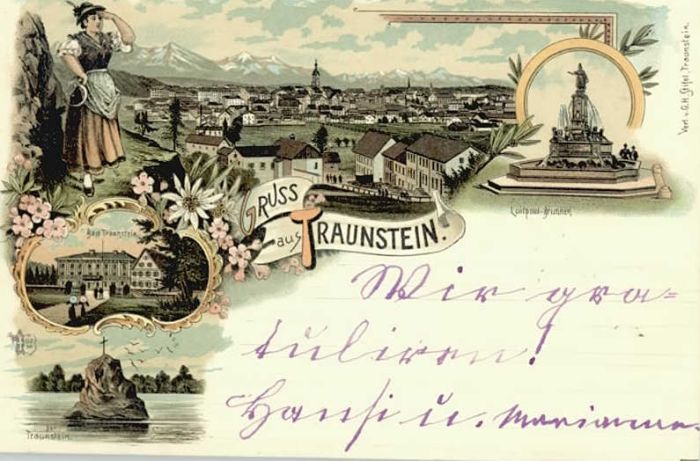 GRUSS
aus TRAUNSTEIN.
Luitpold-Brunnen
Verl. v. G.H. Seifel, Traunstein.
Bad Traunstein
Traunstein.
Wir gra-
tuliren!
Hansi u. Marianne.